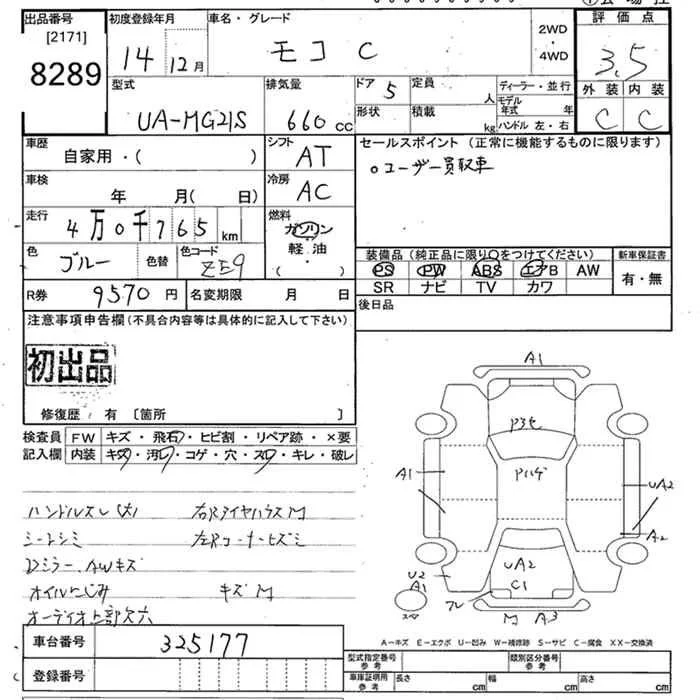 出品番号 初度登録年月 車名・グレード 評価点
[2171] 14年12月 モコ C 2WD・4WD 3,5
8289
型式 排気量 ドア 5 定員 人 ディーラー・並行 外装 内装
UA-MG21S 660cc 形状 積載 kg モデル年式 年 ハンドル 左・右 C C
車歴 シフト セールスポイント (正常に機能するものに限ります)
自家用・( ) AT oユーザー買取車
車検 年 月( 日) 冷房 AC
走行 4万0千765km 燃料 ガソリン 軽油 ( )
色 ブルー 色替 色コード ZE9
装備品 (純正品に限り○をつけてください) 新車保証書
PS PW ABS エアB AW 有・無
SR ナビ TV カワ
R券 9570円 名変期限 月 日 後日品
注意事項申告欄 (不具合内容等は具体的に記入して下さい)
初出品
修復歴 有 〔箇所 〕
検査員 FW キズ・飛石・ヒビ割・リペア跡・×要
記入欄 内装 キズ・汚レ・コゲ・穴・スレ・キレ・破レ
ハンドルスレ(大) 右Rタイヤハウス M
シートシミ 左Rコーナーヒズミ
Dミラー、AWキズ
オイルにじみ キズM
オーディオ上部欠穴
A1
P3セ
Pハゲ
A1 UA2
A2
UA2
C1
U2
A1
フレ M A3
スペア
A-キズ E-エクボ U-凹み W-補修跡 S-サビ C-腐食 XX-交換済
車台番号 325177
登録番号
型式指定番号 参考 類別区分番号 参考
車庫証明用 参考 長さ cm 幅 cm 高さ cm